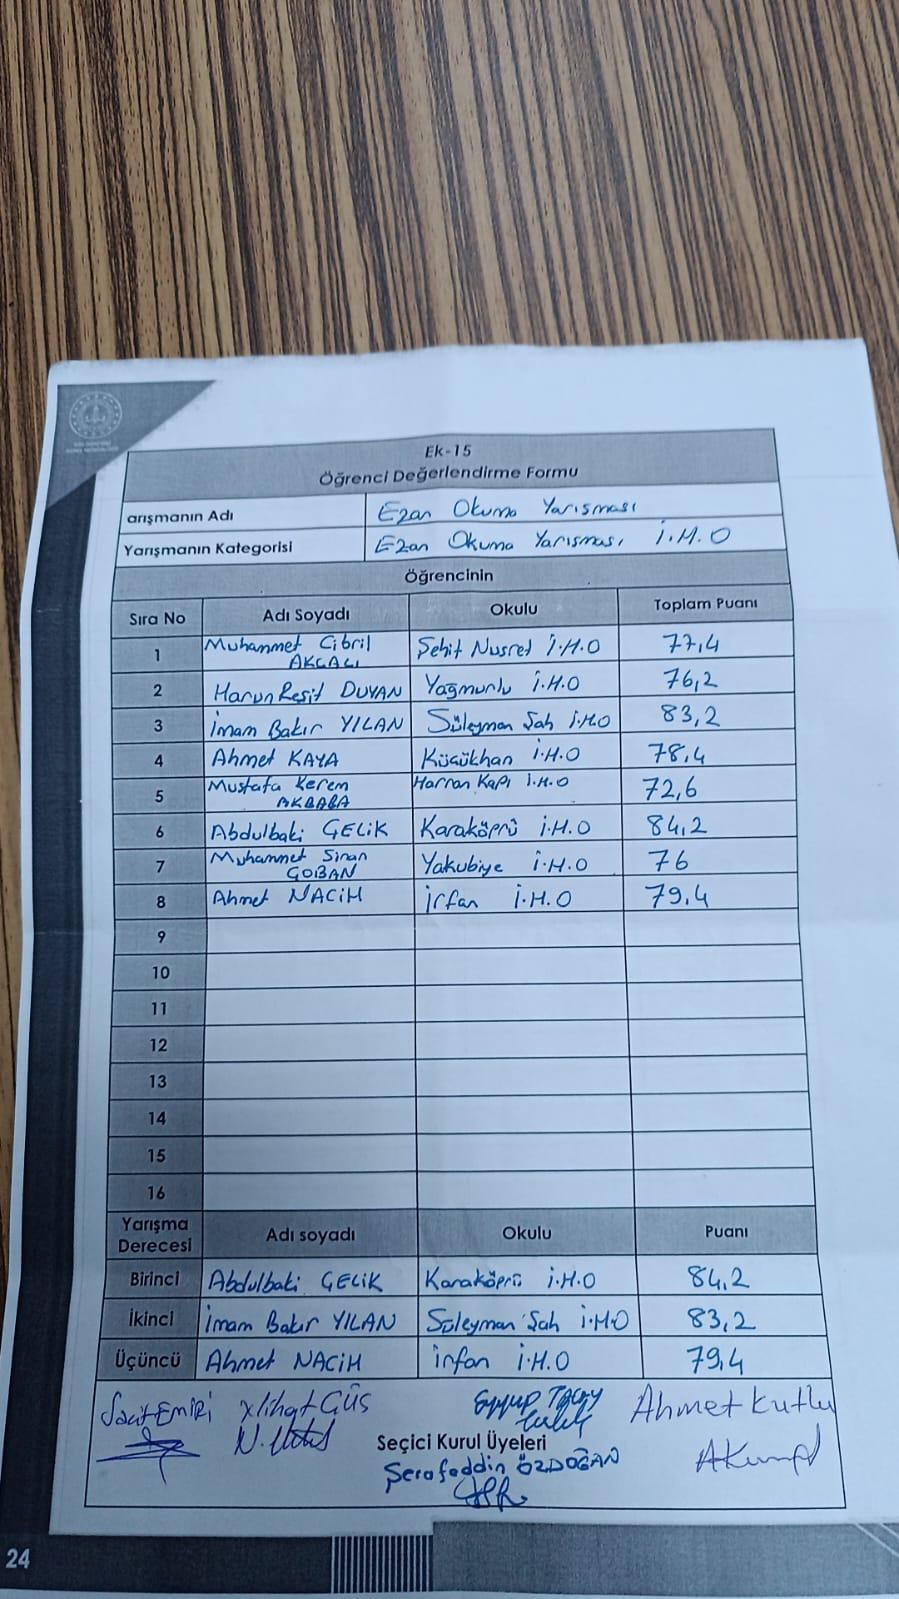 Ek-15
Öğrenci Değerlendirme Formu
arışmanın Adı Ezan Okuma Yarışması
Yarışmanın Kategorisi Ezan Okuma Yarışması İ.H.O
Öğrencinin
Sıra No Adı Soyadı Okulu Toplam Puanı
1 Muhammet Cibril AKÇALI Şehit Nusret İ.H.O 77,4
2 Harun Reşit DUYAN Yağmurlu İ.H.O 76,2
3 İmam Bakır YILAN Süleyman Şah İ.H.O 83,2
4 Ahmet KAYA Küçükhan İ.H.O 78,4
5 Mustafa Kerem AKBABA Harran Kapı İ.H.O 72,6
6 Abdulbaki ÇELİK Karaköprü İ.H.O 84,2
7 Muhammet Sinan ÇOBAN Yakubiye İ.H.O 76
8 Ahmet NACİH İrfan İ.H.O 79,4
9
10
11
12
13
14
15
16
Yarışma Derecesi Adı soyadı Okulu Puanı
Birinci Abdulbaki ÇELİK Karaköprü İ.H.O 84,2
İkinci İmam Bakır YILAN Süleyman Şah İ.H.O 83,2
Üçüncü Ahmet NACİH İrfan İ.H.O 79,4
Ahmet Kutlu
Seçici Kurul Üyeleri
Şerafeddin ÖZDOĞAN
24